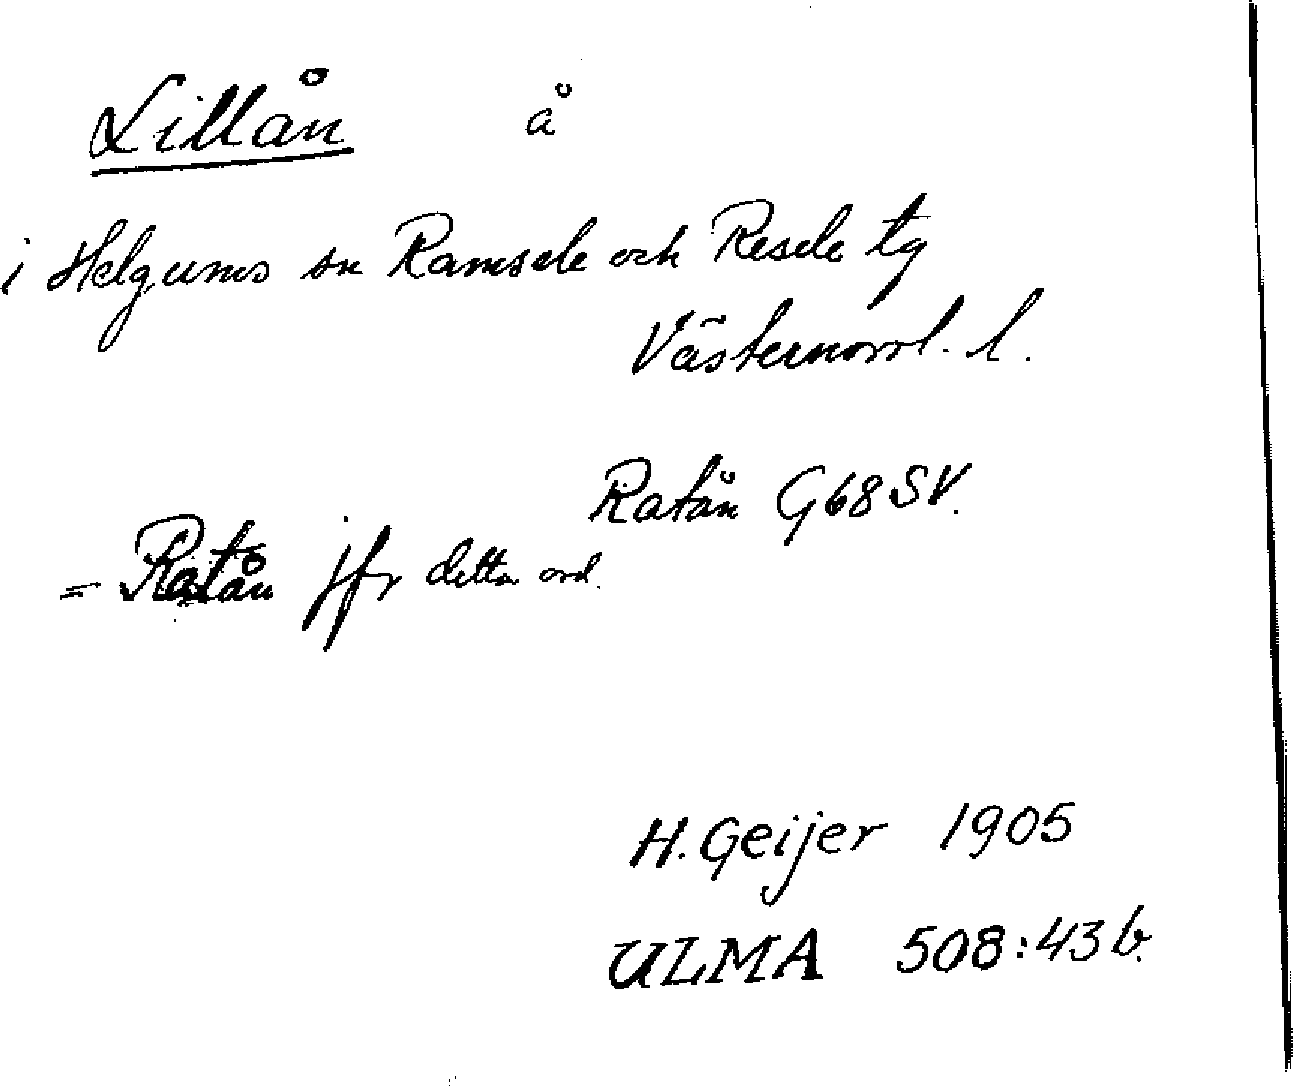 Lillån å
i Helgums sn Ramsele och Resele tg
Västernorrl. l.
Ratån G68SV.
= Ratån jfr detta ord.
H. Geijer 1905
ULMA 508:43b.